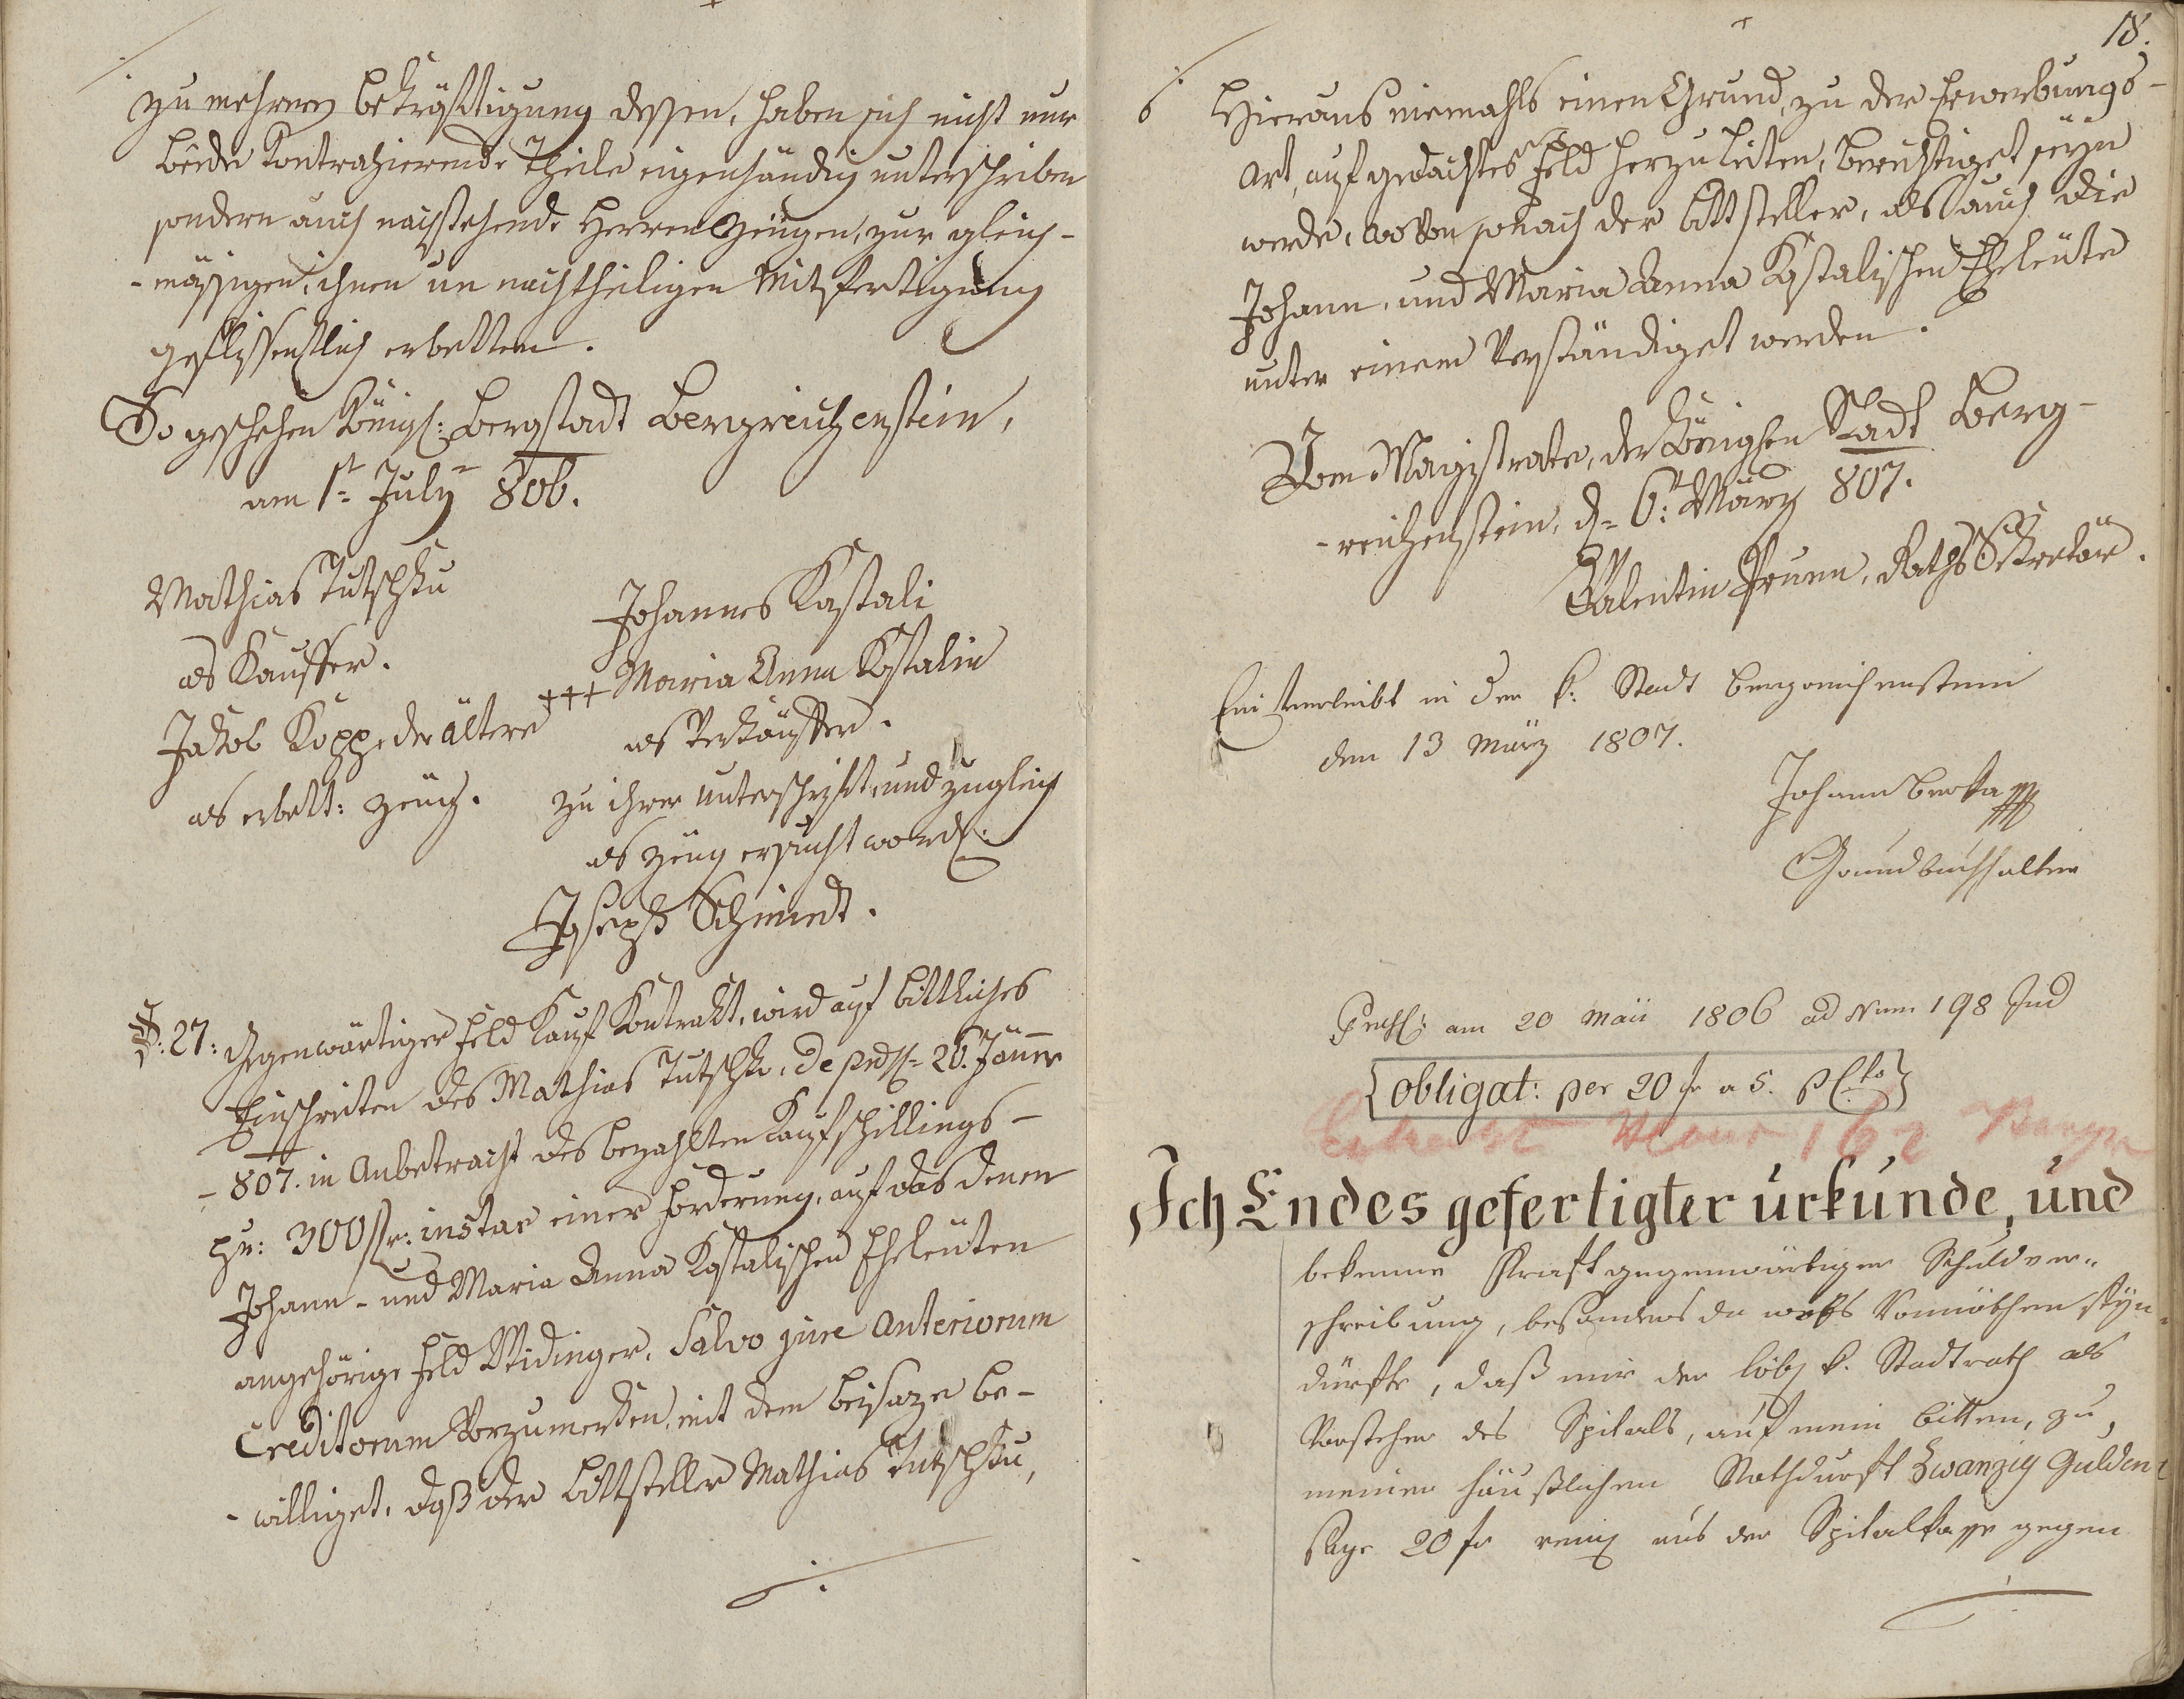 zu mehrerer bekräfftigung dessen, haben sich nicht nur
beede Kontrahierende Theile eigenhändig unterschriben
sondern auch nachstehende Herren Zeügen, zur gleich-
-mässigen, ihnen un nachtheiligen Mitfertigung
geflissentlich erbetten.
So geschehen Königl: Bergstadt Bergreichenstein,
am 1t= July 806.
Mathias Tutschku
als Kauffer.
Jakob Kopp der ältere
als erbett: Zeüg.
Johannes Kastali
+++ Maria Anna Kastalin
als Verkäuffer.
zu ihrer Unterschrifft, und zugleich
als Zeüg ersucht word:
Joseph Schmidt.
§: 27: Gegenwärtiger Feld Kauf Kontrakt, wird auf bittliches
Einschreiten des Mathias Tutschku, de 26. Jänner
- 807. in Anbetracht des bezahlten Kaufschillings-
pr: 300 fr: instar einer Forderung, auf das denen
Johann- und Maria Anna Kastalischen Eheleuten
angehörige Feld Widinger, Salvo jure Anteriorum
Creditorum Vorzumerken, mit dem beisaze be-
-williget, daß der Bittsteller Mathias Tutschku,
18.
Hieraus niemahls einen Grund, zu der Erwerbungs-
Art, auf gedachtes Feld herzuleiten, berechtiget seyn
werde, wovon sonach der Bittsteller, als auch die
Johann, und Maria Anna Kastalischen Eheleüte
unter einem Verständiget werden.
Vom Magistrate, der Königlen Stadt Berg-
-reichenstein, d= 6t: März 807.
Valentin Prunn, Raths Sekretär.
Einverleibt in der k: Stadt Bergreichenstein
den 13 März 1807.
Johann Berka
Grundbuchhalter
am 20 Maii 1806 ad Num 198 Ind
{Obligat: per 20 fr a 5. p Cto}
Ich Endes gefertigter urkunde, und
bekenne Kraft gegenwärtiger Schuldver-
schreibung, besonders da wos Vonnöthen seyn
dürfte, daß mir der löbl k. Stadtrath als
Vorstehen des Spitals, auf mein bitten, zu
meiner häußlichen Nothdurft Zwanzig Gulden
sage 20 fr aus der Spitalkasse gegen